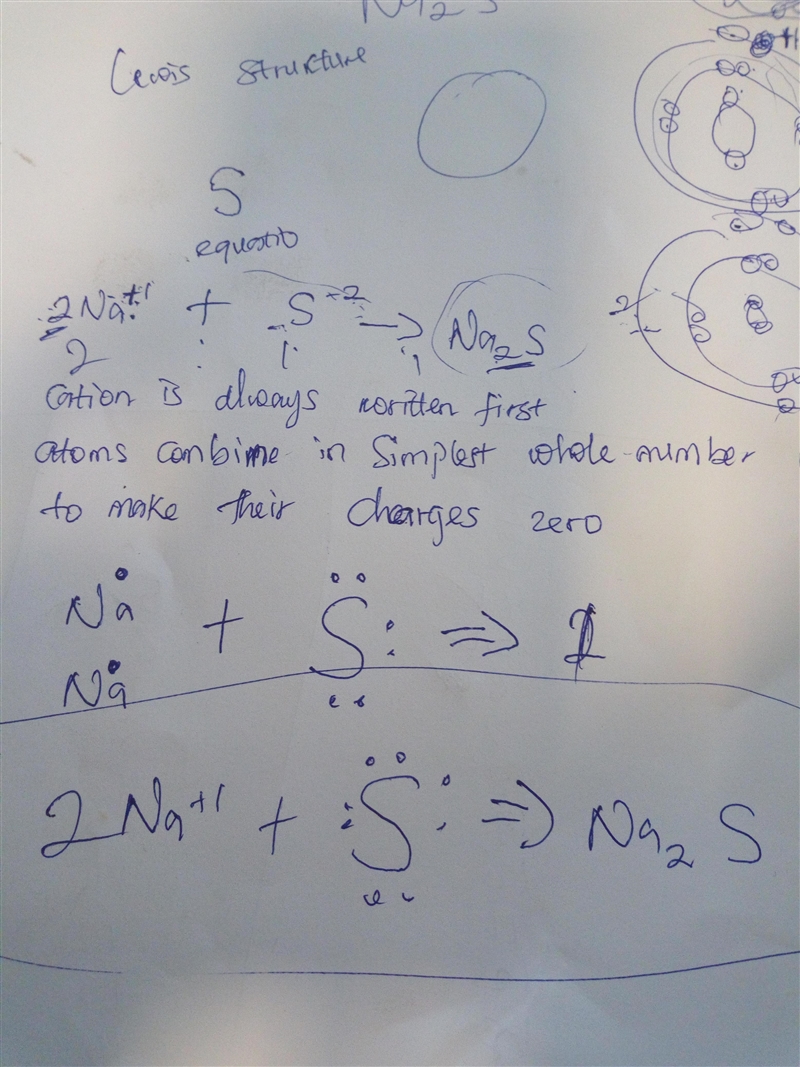 Na2S
Lewis structure
S
equatio
2Na+1 + S-2 → Na2S
2
cation is always written first
atoms combine in Simplest whole number
to make their charges zero
Na + S ⇒
Na
2Na+1 + S ⇒ Na2 S